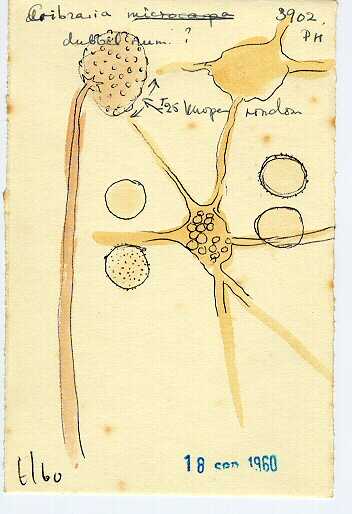 Cribraria ~~microcarpa~~ 3902.
dubbel num. ? PH
± 25 knopen rondom
t/60
18 sep 1960